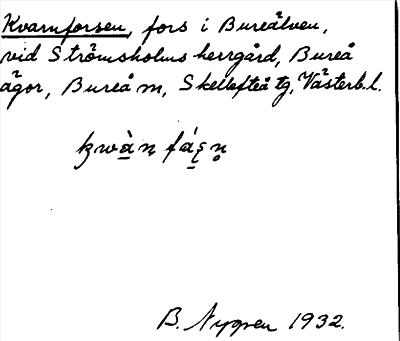 Kvarnforsen, fors i Bureälven,
vid Strömsholms herrgård, Bureå
ägor, Bureå m, Skellefteå tg, Västerb.l.
kwà̠̖n fá̠ʂn̥
B. Nygren 1932.